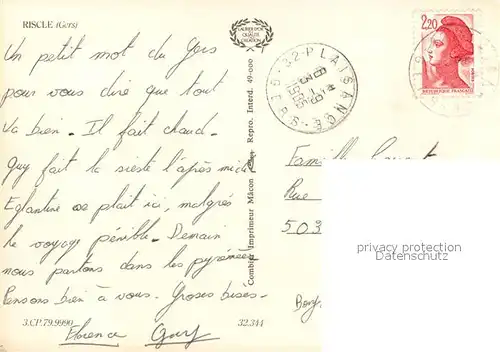 RISCLE (Gers)
LAURIER D'OR
QUALITÉ
CRÉATION
Un petit mot du Gers
pour vous dire que tout
va bien - Il fait chaud -
Guy fait la sieste l'après midi
Eglantine se plait ici, malgrès
le voyage pénible - Demain
nous partons dans les pyrénées
Pensons bien à vous. Groses bises -
Florence Guy
3.CP.79.9990
32.344
Combier Imprimeur Mâcon
Repro. Interd. 49-000
32-PLAISANCE
GERS
2,20
REPUBLIQUE FRANÇAISE
Famille
Rue
503
privacy protection
Datenschutz